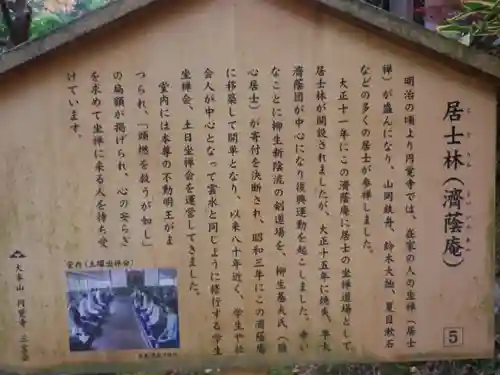 居士林(濟蔭庵)
こじりん
さいいんあん
明治の頃より円覚寺では、在家の人の坐禅(居士
禅)が盛んになり、山岡鉄舟、鈴木大拙、夏目漱石
などの多くの居士が参禅しました。
大正十一年にこの濟蔭庵に居士の坐禅道場として
居士林が開設されましたが、大正十五年に焼失、
濟蔭団が中心になり復興運動を起こしました。幸い
なことに柳生新陰流の剣道場を、柳生基夫氏(
心居士)が寄付を決断され、昭和三年にこの濟蔭庵
に移築して開単となり、以来八十年近く、学生や社
会人が中心となって雲水と同じように修行する学生
坐禅会、土日坐禅会を運営してきました。
堂内には本尊の不動明王がま
つられ、「頭燃を救うが如し」
の扁額が掲げられ、心の安らぎ
を求めて坐禅に来る人を待ち受
けています。
堂内(土曜坐禅会)
大本山 円覚寺
5